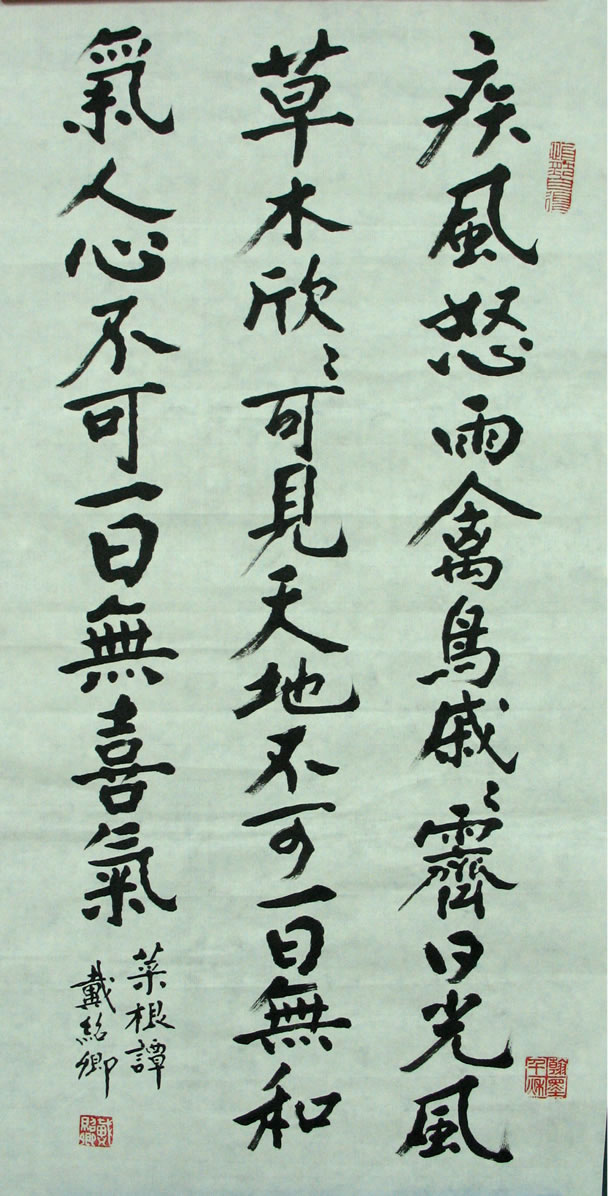 疾風怒雨禽鳥戚〻霽日光風
草木欣〻可見天地不可一日無和
氣人心不可一日無喜氣
菜根譚
戴紹卿